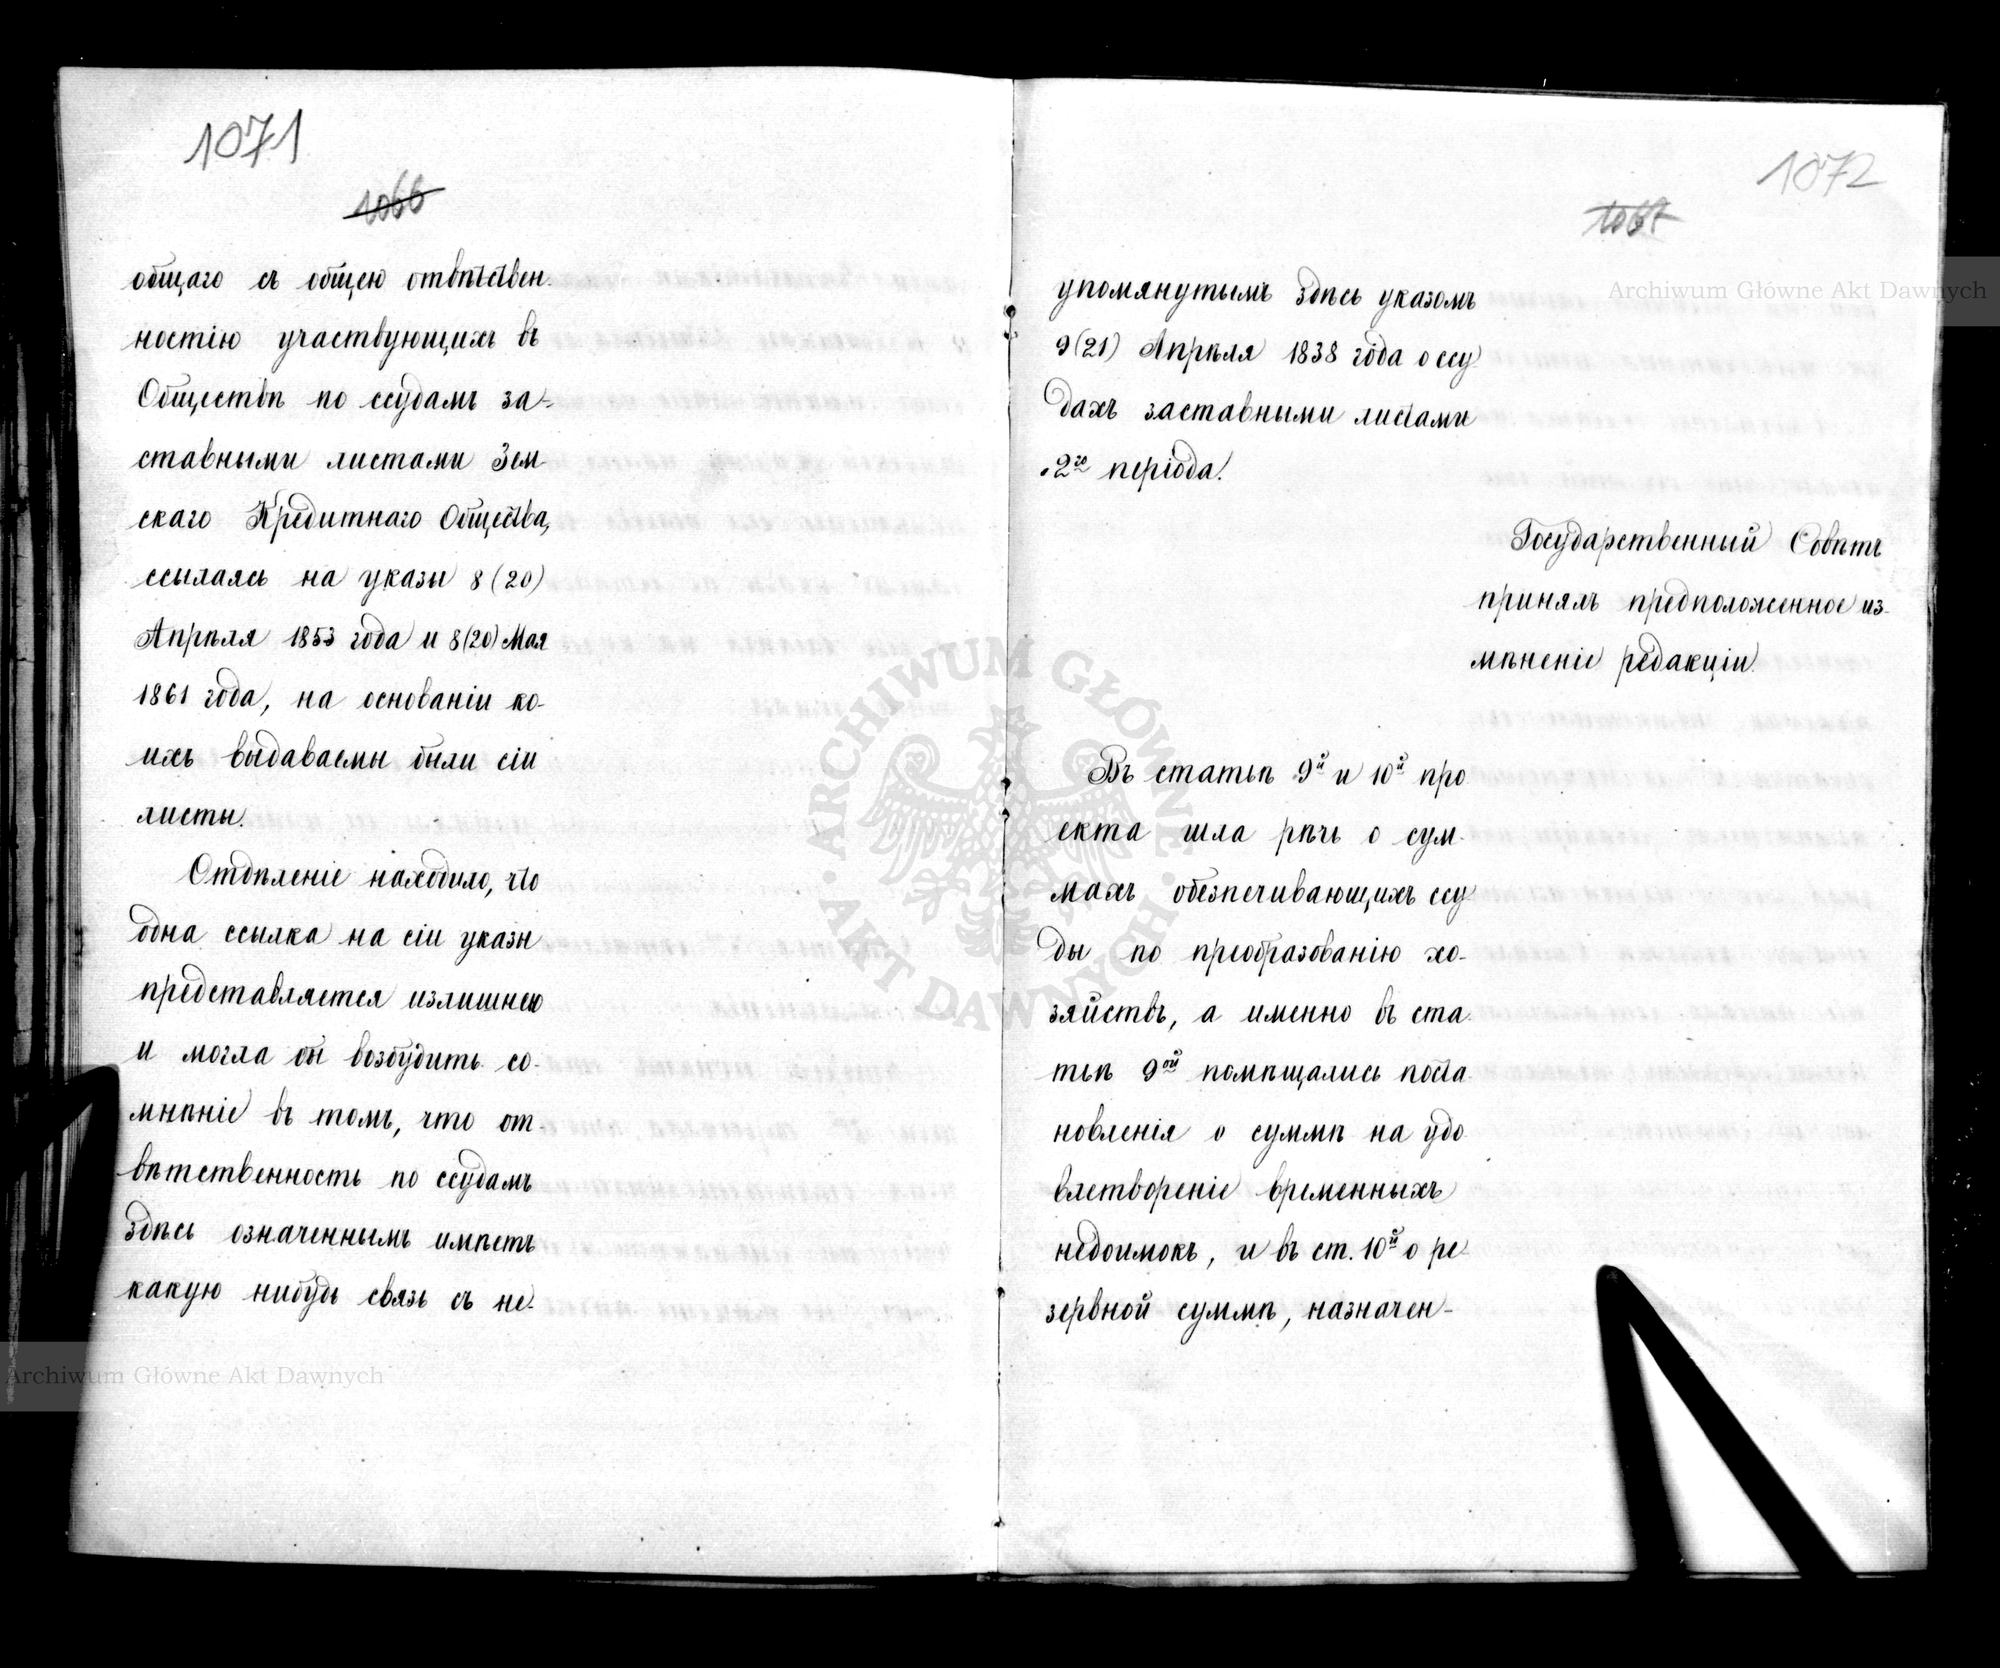 1071
1066
общаго съ общею отвѣтствен-
ностію участвующихъ въ
Обществѣ по ссудамъ за-
ставными листами Зем-
скаго Кредитнаго Общества,
ссылаясь на указы 8 (20)
Апрѣля 1853 года и 8 (20) Мая
1861 года, на основаніи ко-
ихъ выдаваемы были сіи
листы.
Отдѣленіе находило, что
одна ссылка на сіи указы
представляется излишнею
и могла бы возбудить со-
мнѣніе въ томъ, что от-
вѣтственность по ссудамъ
здѣсь означеннымъ имѣетъ
какую нибудь связь съ не-
1072
1067
упомянутымъ здѣсь указомъ
9 (21) Апрѣля 1838 года о ссу-
дахъ заставными листами
2го періода.
Государственный Совѣтъ
принялъ предположенное из-
мѣненіе редакціи.
Въ статьѣ 9й и 10й про
екта шла рѣчь о сум-
махъ обезпечивающихъ ссу
ды по преобразованію хо-
зяйствъ, а именно въ ста
тьѣ 9ой помѣщались поста
новленія о суммѣ на удо
влетвореніе временныхъ
недоимокъ, и въ ст. 10й о ре-
зервной суммѣ, назначен-
Archiwum Główne Akt Dawnych
Archiwum Główne Akt Dawnych
ARCHIWUM GŁÓWNE · AKT DAWNYCH ·